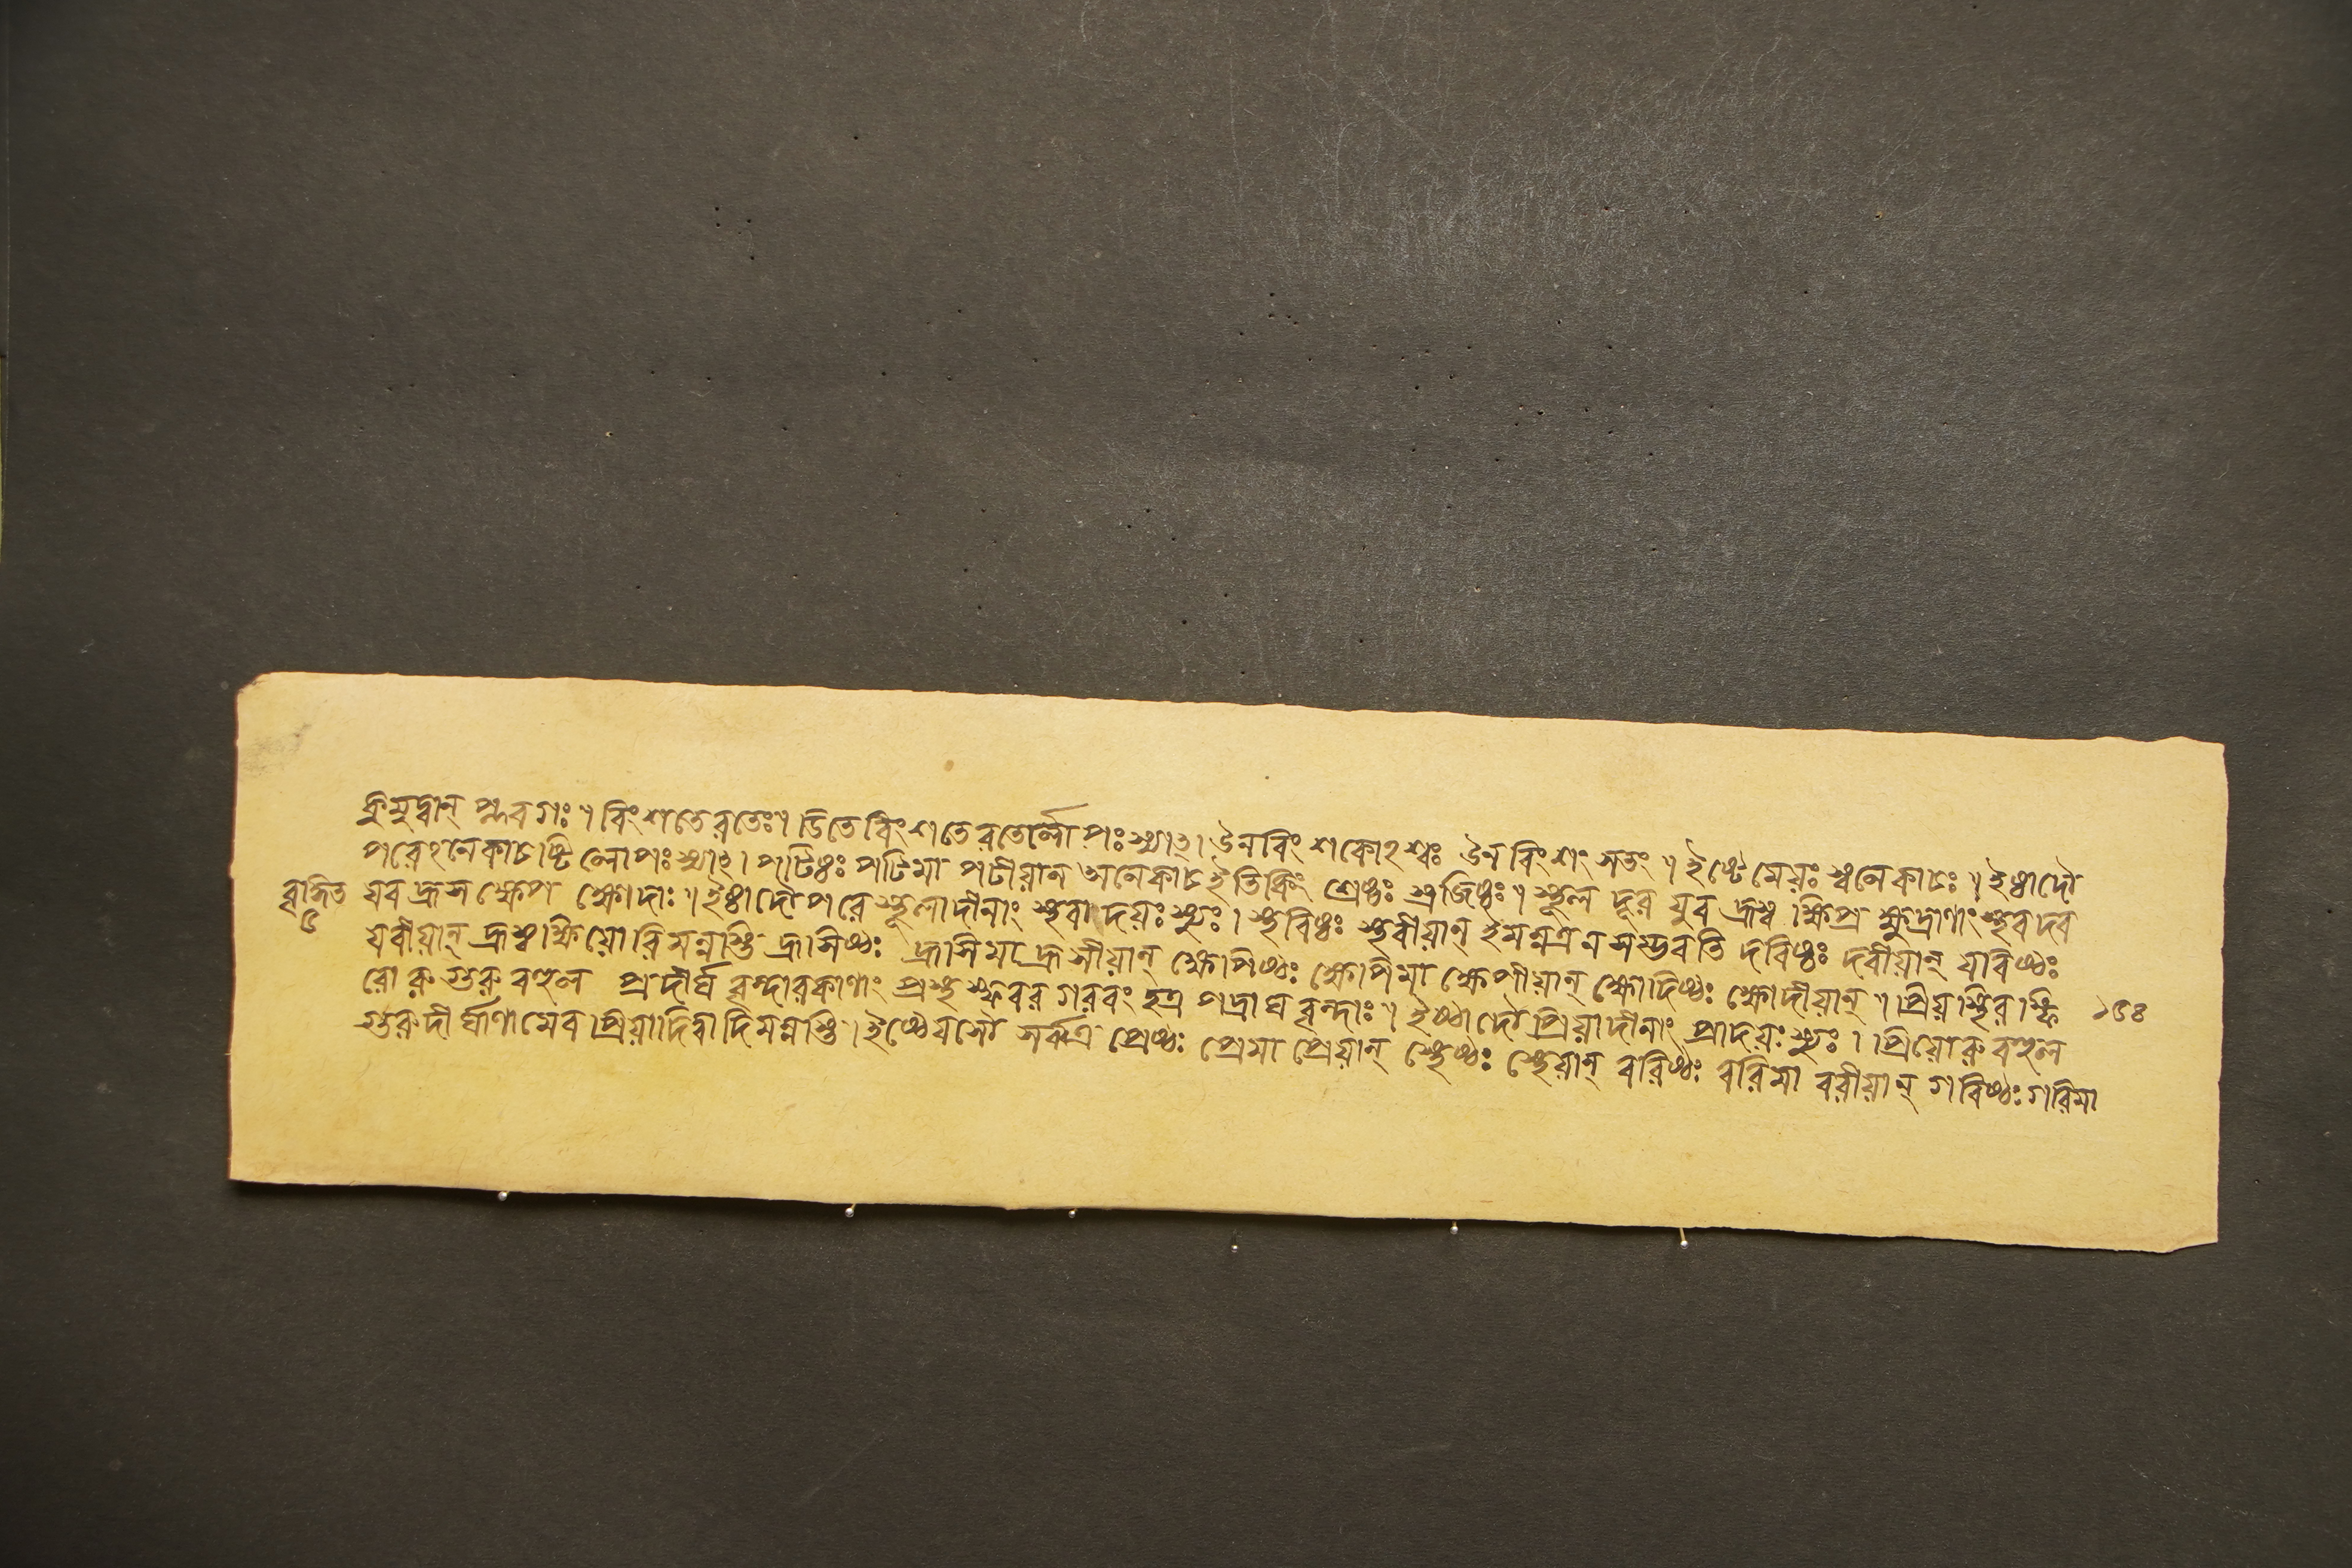 কুমুদ্বান্ প্লবগঃ ৷৷ বিংশতেরতেঃ ৷৷ ডিতে বিংশতেরতের্লোপঃ স্যাৎ ৷ ঊনবিংশকোঽশ্বঃ ঊনবিংশং সতং ৷৷ ইষ্ঠেমেয়ঃ স্বনেকাচঃ ৷৷ ইষ্ঠাদৌ
পরেঽনেকাচষ্টিলোপঃ স্যাৎ ৷ পটিষ্ঠঃ পটিমা পটীয়ান অনেকাচ ইতি কিং শ্রেষ্ঠঃ স্রজিষ্ঠঃ ৷৷ স্থূল দূর যুব হ্রস্ব ক্ষিপ্র ক্ষুদ্রাণাং স্থবদব
যব হ্রস ক্ষেপ ক্ষোদাঃ ৷৷ ইষ্ঠাদৌ পরে স্থূলাদীনাং স্থবাদয়ঃ স্যুঃ ৷ স্থবিষ্ঠঃ স্থবীয়ান্ ইমন্নত্র ন সম্ভবতি দবিষ্ঠঃ দবীয়ান্ যবিষ্ঠঃ
যবীয়ান্ হ্রস্বক্ষিয়োরিমন্নস্তি হ্রাসিষ্ঠঃ হ্রাসিমা হ্রাসীয়ান্ ক্ষোপিষ্ঠঃ ক্ষোপিমা ক্ষেপীয়ান্ ক্ষোদিষ্ঠঃ ক্ষোদীয়ান্ ৷৷ প্রিয়স্থিরস্ফি
রোরুগুরুবহুল প্রদীর্ঘ বৃন্দারকাণাং প্রস্থস্ফবরগরবংহত্রপদ্রাঘবৃন্দাঃ ৷৷ ইষ্ঠাদৌ প্রিয়াদীনাং প্রাদয়ঃ স্যুঃ ৷ প্রিয়োরুবহুল
গুরুদীর্ঘাণামেব প্রিয়াদিত্বাদিমন্নস্তি ৷ ইষ্ঠেযসৌ সর্বত্র প্রেষ্ঠঃ প্রেমা প্রেয়ান্ স্থেষ্ঠঃ স্থেয়ান্ বরিষ্ঠঃ বরিমা বরীয়ান্ গবিষ্ঠঃ গরিমা